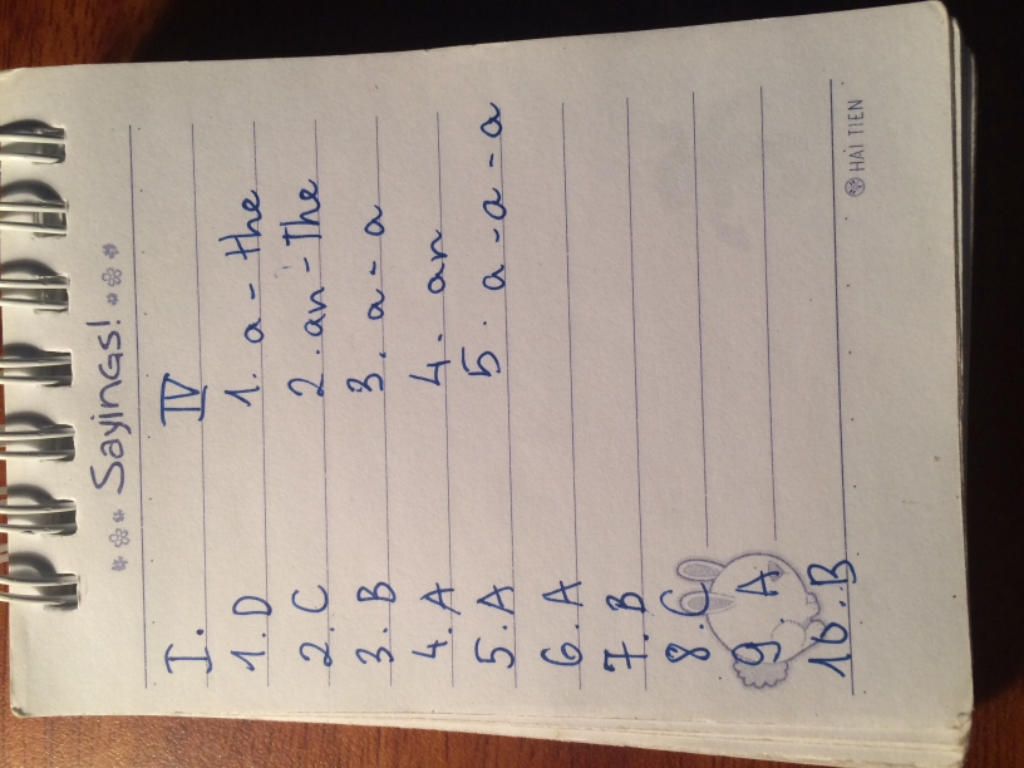 Sayings!
I.
1. D
2. C
3. B
4. A
5. A
6. A
7. B
8. C
9. A
10. B
IV
1. a - the
2. an - the
3. a - a
4. an
5. a - a - a
HẢI TIẾN